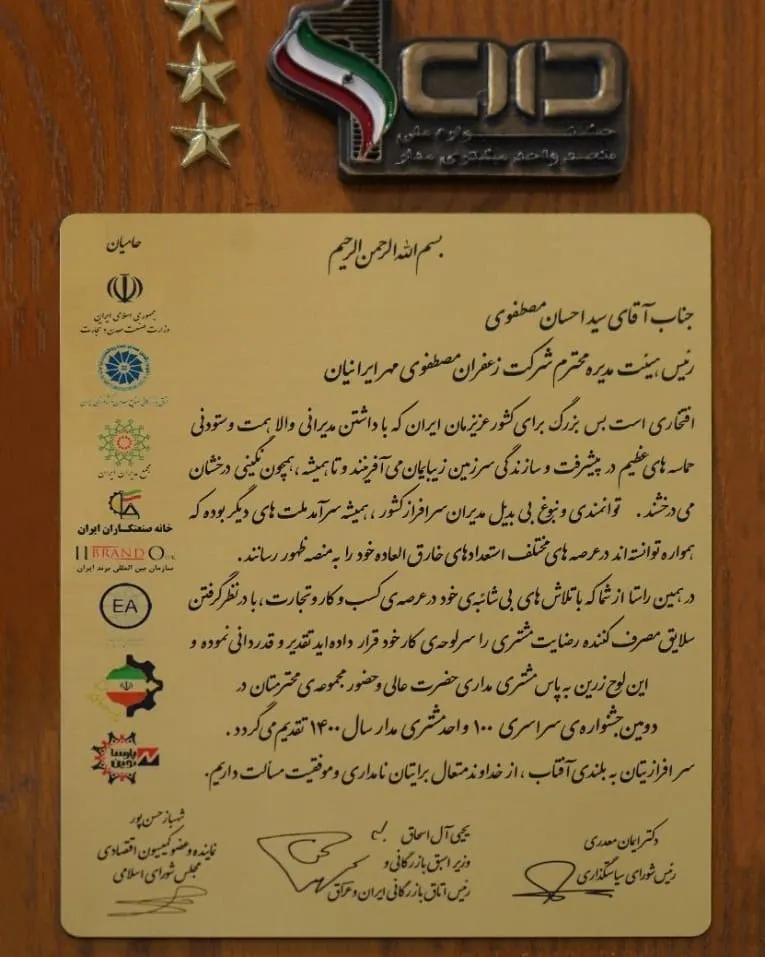 جشنواره ملی
یکصد واحد مشتری مدار
حامیان
جمهوری اسلامی ایران
وزارت صنعت معدن و تجارت
مجمع مدیران ایران
خانه صنعتکاران ایران
IIBRANDO
سازمان بین المللی برند ایران
EA
پارسا نوین
بسم الله الرحمن الرحیم
جناب آقای سید احسان مصطفوی
رئیس هیئت مدیره محترم شرکت زعفران مصطفوی مهر ایرانیان
افتخاری است بس بزرگ برای کشور عزیزمان ایران که با داشتن مدیرانی والا همت و ستودنی
حماسه های عظیم در پیشرفت و سازندگی سرزمین زیبایمان می آفرینند و تا همیشه ، همچون نگینی درخشان
می درخشند . توانمندی و نبوغ بی بدیل مدیران سرافراز کشور ، همیشه سرآمد ملت های دیگر بوده که
همواره توانسته اند در عرصه های مختلف استعدادهای خارق العاده خود را به منصه ظهور رسانند .
در همین راستا از شما که با تلاش های بی شائبه ی خود در عرصه ی کسب و کار و تجارت ، با در نظر گرفتن
سلایق مصرف کننده رضایت مشتری را سرلوحه ی کار خود قرار داده اید تقدیر و قدردانی نموده و
این لوح زرین به پاس مشتری مداری حضرت عالی و حضور مجموعه ی محترمتان در
دومین جشنواره ی سراسری ۱۰۰ واحد مشتری مدار سال ۱۴۰۰ تقدیم می گردد .
سرافرازیتان به بلندی آفتاب ، از خداوند متعال برایتان نامداری و موفقیت مسألت داریم .
دکتر ایمان معدری
رئیس شورای سیاستگذاری
یحیی آل اسحاق
وزیر اسبق بازرگانی و
رئیس اتاق بازرگانی ایران و عراق
شهباز حسن پور
نماینده و عضو کمیسیون اقتصادی
مجلس شورای اسلامی